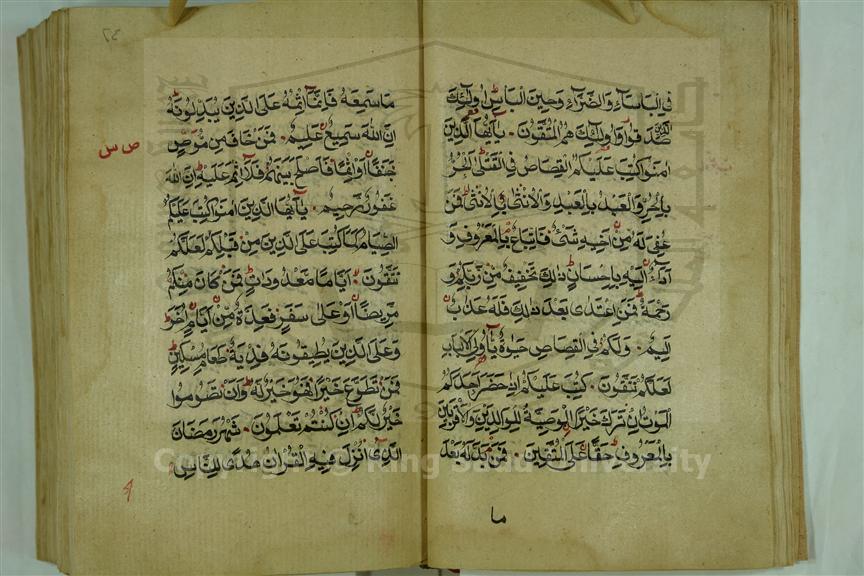 في البأساء والضراء وحين البأس أولئك
الذين صدقوا وأولئك هم المتقون ۰ يا أيها الذين
امنوا كتب عليكم القصاص في القتلى الحر
بالحر والعبد بالعبد والانثى بالانثى فمن
عفي له من اخيه شئ فاتباع بالمعروف و
اداء اليه باحسان ذلك تخفيف من ربكم و
رحمة فمن اعتدى بعد ذلك فله عذاب
اليم ۰ ولكم في القصاص حيوة يا أولي الالباب
لعلكم تتقون ۰ كتب عليكم اذا حضر احدكم
الموت ان ترك خيرا الوصية للوالدين والاقربين
بالمعروف حقا على المتقين ۰ فمن بدله بعد
ما
ما سمعه فانما اثمه على الذين يبدلونه
ان الله سميع عليم ۰ فمن خاف من موص
جنفا او اثما فاصلح بينهم فلا اثم عليه ان الله
غفور رحيم ۰ يا أيها الذين امنوا كتب عليكم
الصيام كما كتب على الذين من قبلكم لعلكم
تتقون ۰ اياما معدودات فمن كان منكم
مريضا او على سفر فعدة من ايام اخر
وعلى الذين يطيقونه فدية طعام مسكين
فمن تطوع خيرا فهو خير له وان تصوموا
خير لكم ان كنتم تعلمون ۰ شهر رمضان
الذي انزل فيه القران هدى للناس
ص س
Copyright © King Saud University